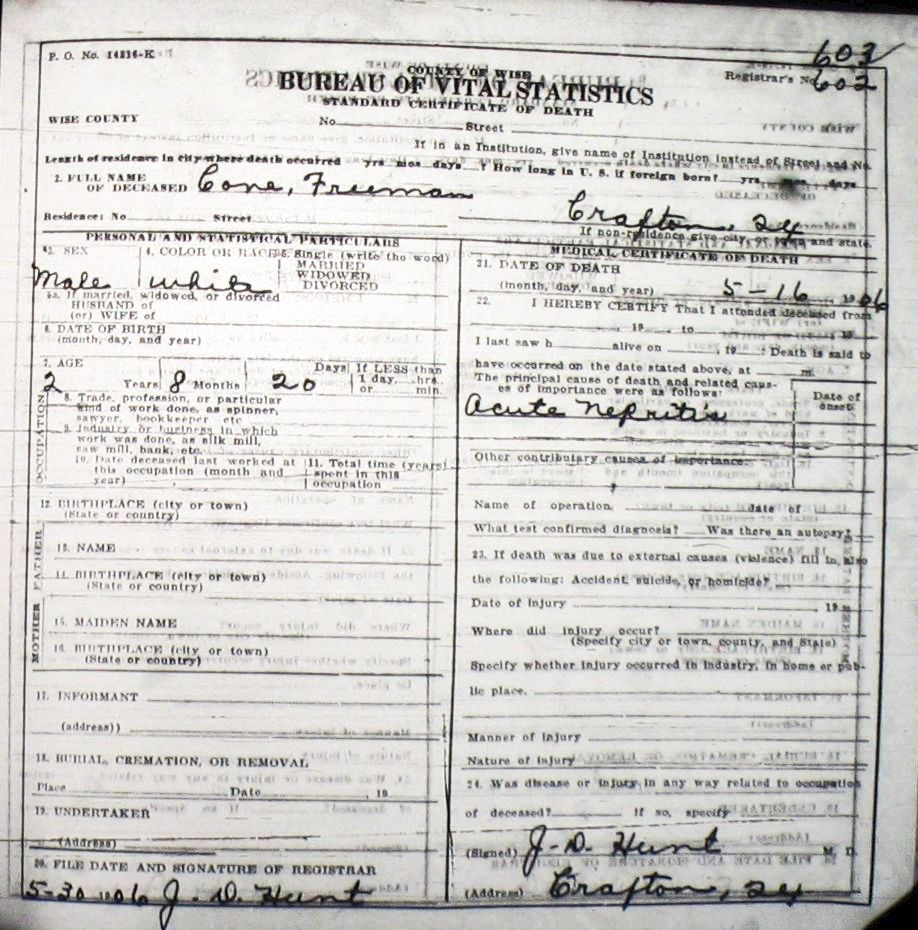 P. O. No. 14216-K
603
Registrar's No. 602
COUNTY OF WISE
BUREAU OF VITAL STATISTICS
STANDARD CERTIFICATE OF DEATH
WISE COUNTY No. Street
If in an Institution, give name of Institution instead of Street and No.
Length of residence in city where death occurred yrs mos days ? How long in U. S. if foreign born? yrs days
2. FULL NAME
OF DECEASED Cone, Freeman
Residence: No Street Crafton,
If non-residence give city, or town and state.
PERSONAL AND STATISTICAL PARTICULARS
3. SEX Male
4. COLOR OR RACE white
5. Single (write the word)
MARRIED
WIDOWED
DIVORCED
If married, widowed, or divorced
HUSBAND of
(or) WIFE of
6. DATE OF BIRTH
(month, day, and year)
7. AGE
2 Years 8 Months 20 Days
If LESS than
1 day, hrs.
or min.
OCCUPATION
8. Trade, profession, or particular
kind of work done, as spinner,
sawyer, bookkeeper, etc.
9. Industry or business in which
work was done, as silk mill,
saw mill, bank, etc.
10. Date deceased last worked at
this occupation (month and
year)
11. Total time (years)
spent in this
occupation
12. BIRTHPLACE (city or town)
(State or country)
FATHER
13. NAME
14. BIRTHPLACE (city or town)
(State or country)
MOTHER
15. MAIDEN NAME
16. BIRTHPLACE (city or town)
(State or country)
17. INFORMANT
(address))
18. BURIAL, CREMATION, OR REMOVAL
Place Date 19
19. UNDERTAKER
(Address)
20. FILE DATE AND SIGNATURE OF REGISTRAR
5-30 1906 J. D. Hunt
MEDICAL CERTIFICATE OF DEATH
21. DATE OF DEATH
(month, day, and year) 5-16 1906
22. I HEREBY CERTIFY That I attended deceased from
, 19 to , 19
I last saw h alive on , 19 : Death is said to
have occurred on the date stated above, at m
The principal cause of death and related caus-
es of importance were as follows:
Date of
onset
Acute Nepritis
Other contributary causes of importance.
Name of operation date of
What test confirmed diagnosis? Was there an autopsy?
23. If death was due to external causes (violence) fill in also
the following: Accident, suicide, or homicide?
Date of injury 19
Where did injury occur?
(Specify city or town, county, and State)
Specify whether injury occurred in industry, in home or pub-
lic place.
Manner of injury
Nature of injury
24. Was disease or injury in any way related to occupation
of deceased? If so, specify
(Signed) J. D. Hunt M. D.
(Address) Crafton,